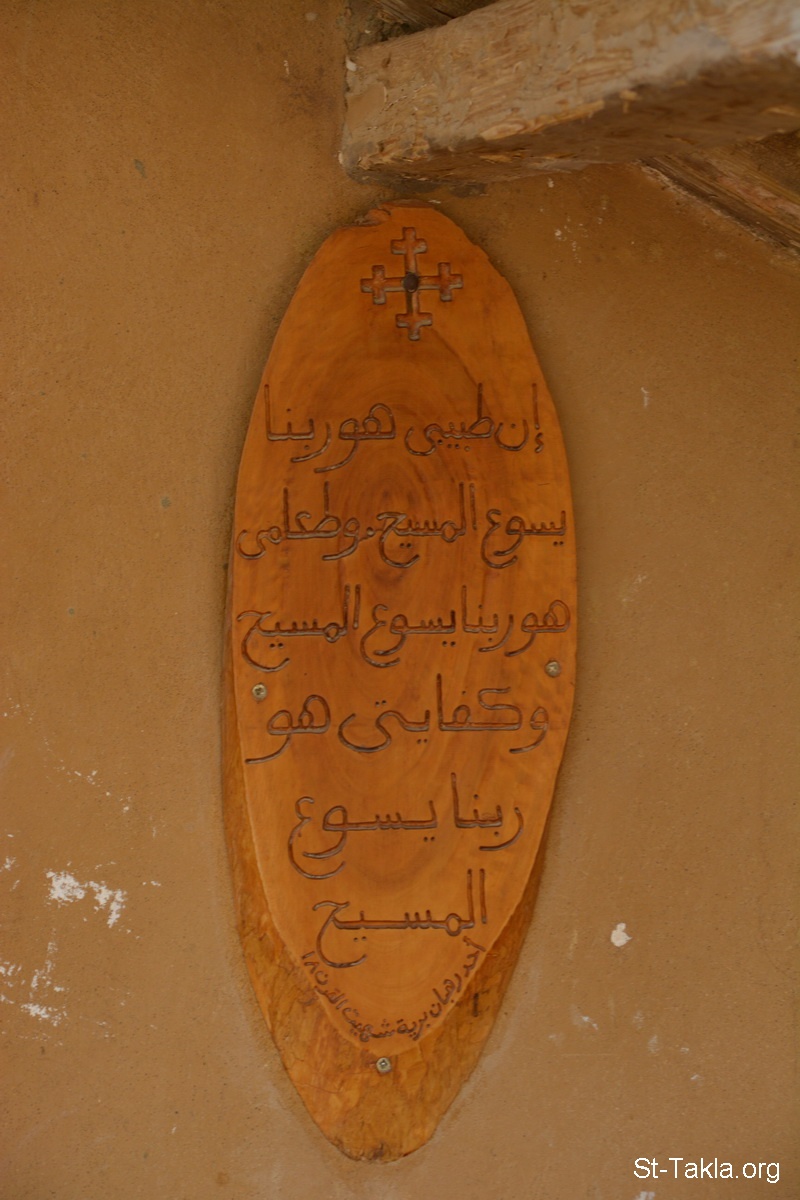 إن طبيبى هو ربنا
يسوع المسيح. وطعامى
هو ربنا يسوع المسيح
وكفايتى هو
ربنا يسوع
المسيح
أحد رهبان برية شهيت القرن ١٨
St-Takla.org